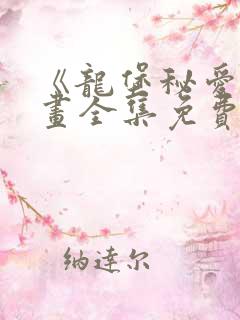 《龍堡秘愛
畫全集免費
纳達尔